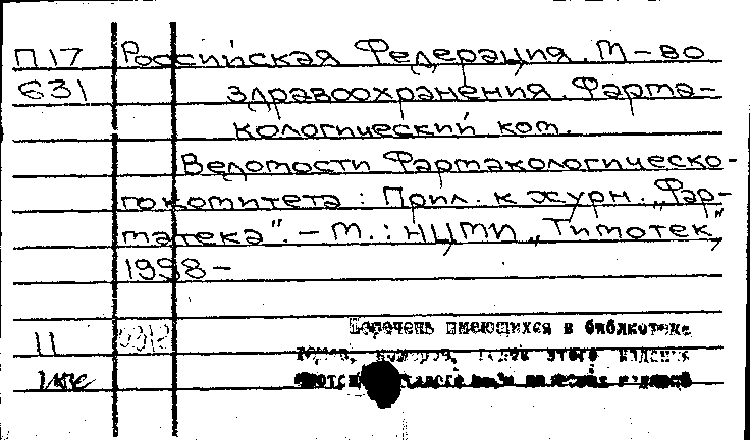 П17 Российская Федерация. М-во
631 здравоохранения. Фарма-
кологический ком.
Ведомости Фармакологическо-
го комитета : Прил. к журн. „Фар-
матека". – М. : НЦМИ „Тимотек",
1998–
11
Перечень имеющихся в библиотеке
томов, номеров, этого издания